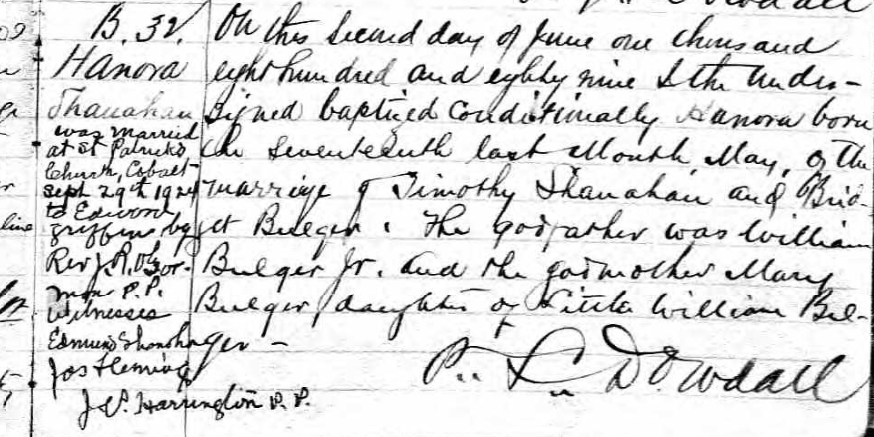 B. 32.
Hanora
Shanahan
was married
at St Patrick's
Church, Cobalt
Sept 29th 1924
to Edward
Griffins by
Rev J. R. O'Gor-
man P.P.
Witnesses
Edmund Shanahan
Jos Fleming
J. P. Harrington P. P.
On this second day of June one thousand
eight hundred and eighty nine I the under-
signed baptized conditionally Hanora born
the seventeenth last month May, of the
marriage of Timothy Shanahan and Brid-
get Bulger. The godfather was William
Bulger Jr. and the godmother Mary
Bulger, daughter of Little William Bul-
ger -
Dowdall